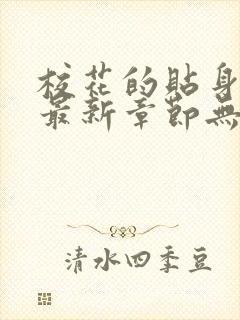 校花的貼身
最新章節無
清水四季豆